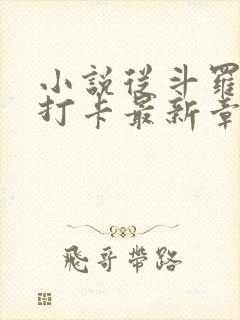 小說從斗羅
打卡最新章
飛哥帶路